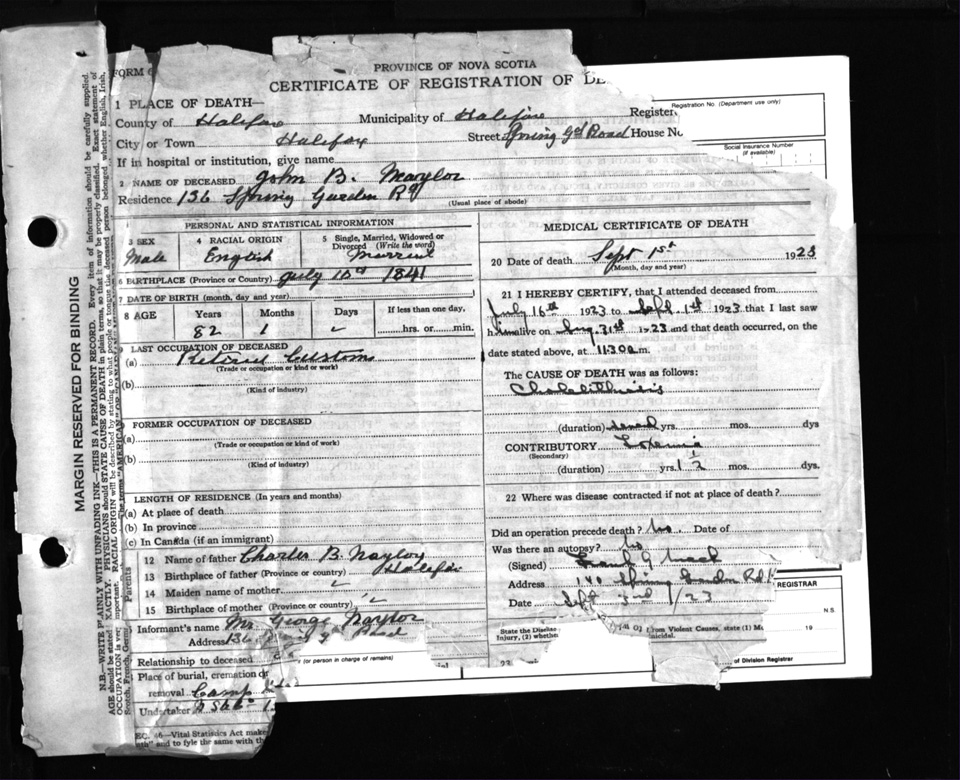 FORM 6
PROVINCE OF NOVA SCOTIA
CERTIFICATE OF REGISTRATION OF DE
Registration No (Department use only)
1 PLACE OF DEATH—
County of Halifax Municipality of Halifax Register
City or Town Halifax Street Spring Gd Road House No
Social Insurance Number
(if available)
If in hospital or institution, give name
2 NAME OF DECEASED John B. Naylor
Residence 136 Spring Garden Rd
(Usual place of abode)
PERSONAL AND STATISTICAL INFORMATION
3 SEX
Male
4 RACIAL ORIGIN
English
5 Single, Married, Widowed or
Divorced (Write the word)
Married
6 BIRTHPLACE (Province or Country) July 10th 1841
7 DATE OF BIRTH (month, day and year)
8 AGE Years Months Days If less than one day,
82 1 hrs. or min.
LAST OCCUPATION OF DECEASED
(a) Retired Customs
(Trade or occupation or kind or work)
(b)
(Kind of industry)
FORMER OCCUPATION OF DECEASED
(a)
(Trade or occupation or kind of work)
(b)
(Kind of industry)
LENGTH OF RESIDENCE (In years and months)
(a) At place of death
(b) In province
(c) In Canada (if an immigrant)
Parents
12 Name of father Charles B. Naylor
13 Birthplace of father (Province or country) Halifax
14 Maiden name of mother
15 Birthplace of mother (Province or country)
Informant's name Mr George Naylor
Address 136 Road
Relationship to deceased
(or person in charge of remains)
Place of burial, cremation or
removal Camp
Undertaker
EC. 46—Vital Statistics Act make
ath" and to fyle the same with the
MEDICAL CERTIFICATE OF DEATH
20 Date of death Sept 1st 1923
(Month, day and year)
21 I HEREBY CERTIFY, that I attended deceased from
July 16th 1923 to Sept. 1st 1923 that I last saw
him alive on Aug 31st 1923 and that death occurred, on the
date stated above, at 11.30 a.m.
The CAUSE OF DEATH was as follows:
Cholelithiasis
(duration) several yrs. mos. dys
CONTRIBUTORY Toxemia
(Secondary)
(duration) yrs. 1 1/2 mos. dys.
22 Where was disease contracted if not at place of death?
Did an operation precede death? No Date of
Was there an autopsy? No
(Signed) Frank G Mack
Address 140 Spring Garden Rd
Date Sept 3rd /23
REGISTRAR
N.S.
State the Disease
Injury, (2) whether
from Violent Causes, state (1) Me
19
of Division Registrar
MARGIN RESERVED FOR BINDING
N.B.—WRITE PLAINLY WITH UNFADING INK—THIS IS A PERMANENT RECORD. Every item of information should be carefully supplied.
AGE should be stated EXACTLY. PHYSICIANS should STATE CAUSE OF DEATH in plain terms, so that it may be properly classified. Exact statement of
OCCUPATION is very important. RACIAL ORIGIN will be described by stating to what people or tongue the deceased person belonged whether English, Irish,
Scotch, French, German
The terms "AMERICAN" OR "CANADIAN"